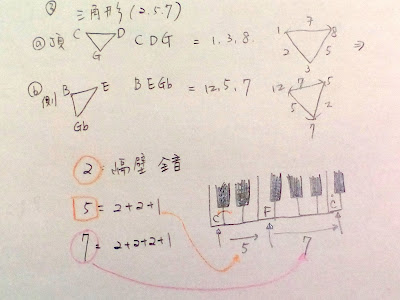 ③ 三角形 (2.5.7)
ⓐ 頂 C D G C D G = 1.3.8. 1 7 8 2 5 3 ⇒
ⓑ 側 B E Gb B E Gb = 12.5.7 12 7 5 5 2 7
2 : 隔壁 全音
5 = 2+2+1 C F C
7 = 2+2+2+1 5 7